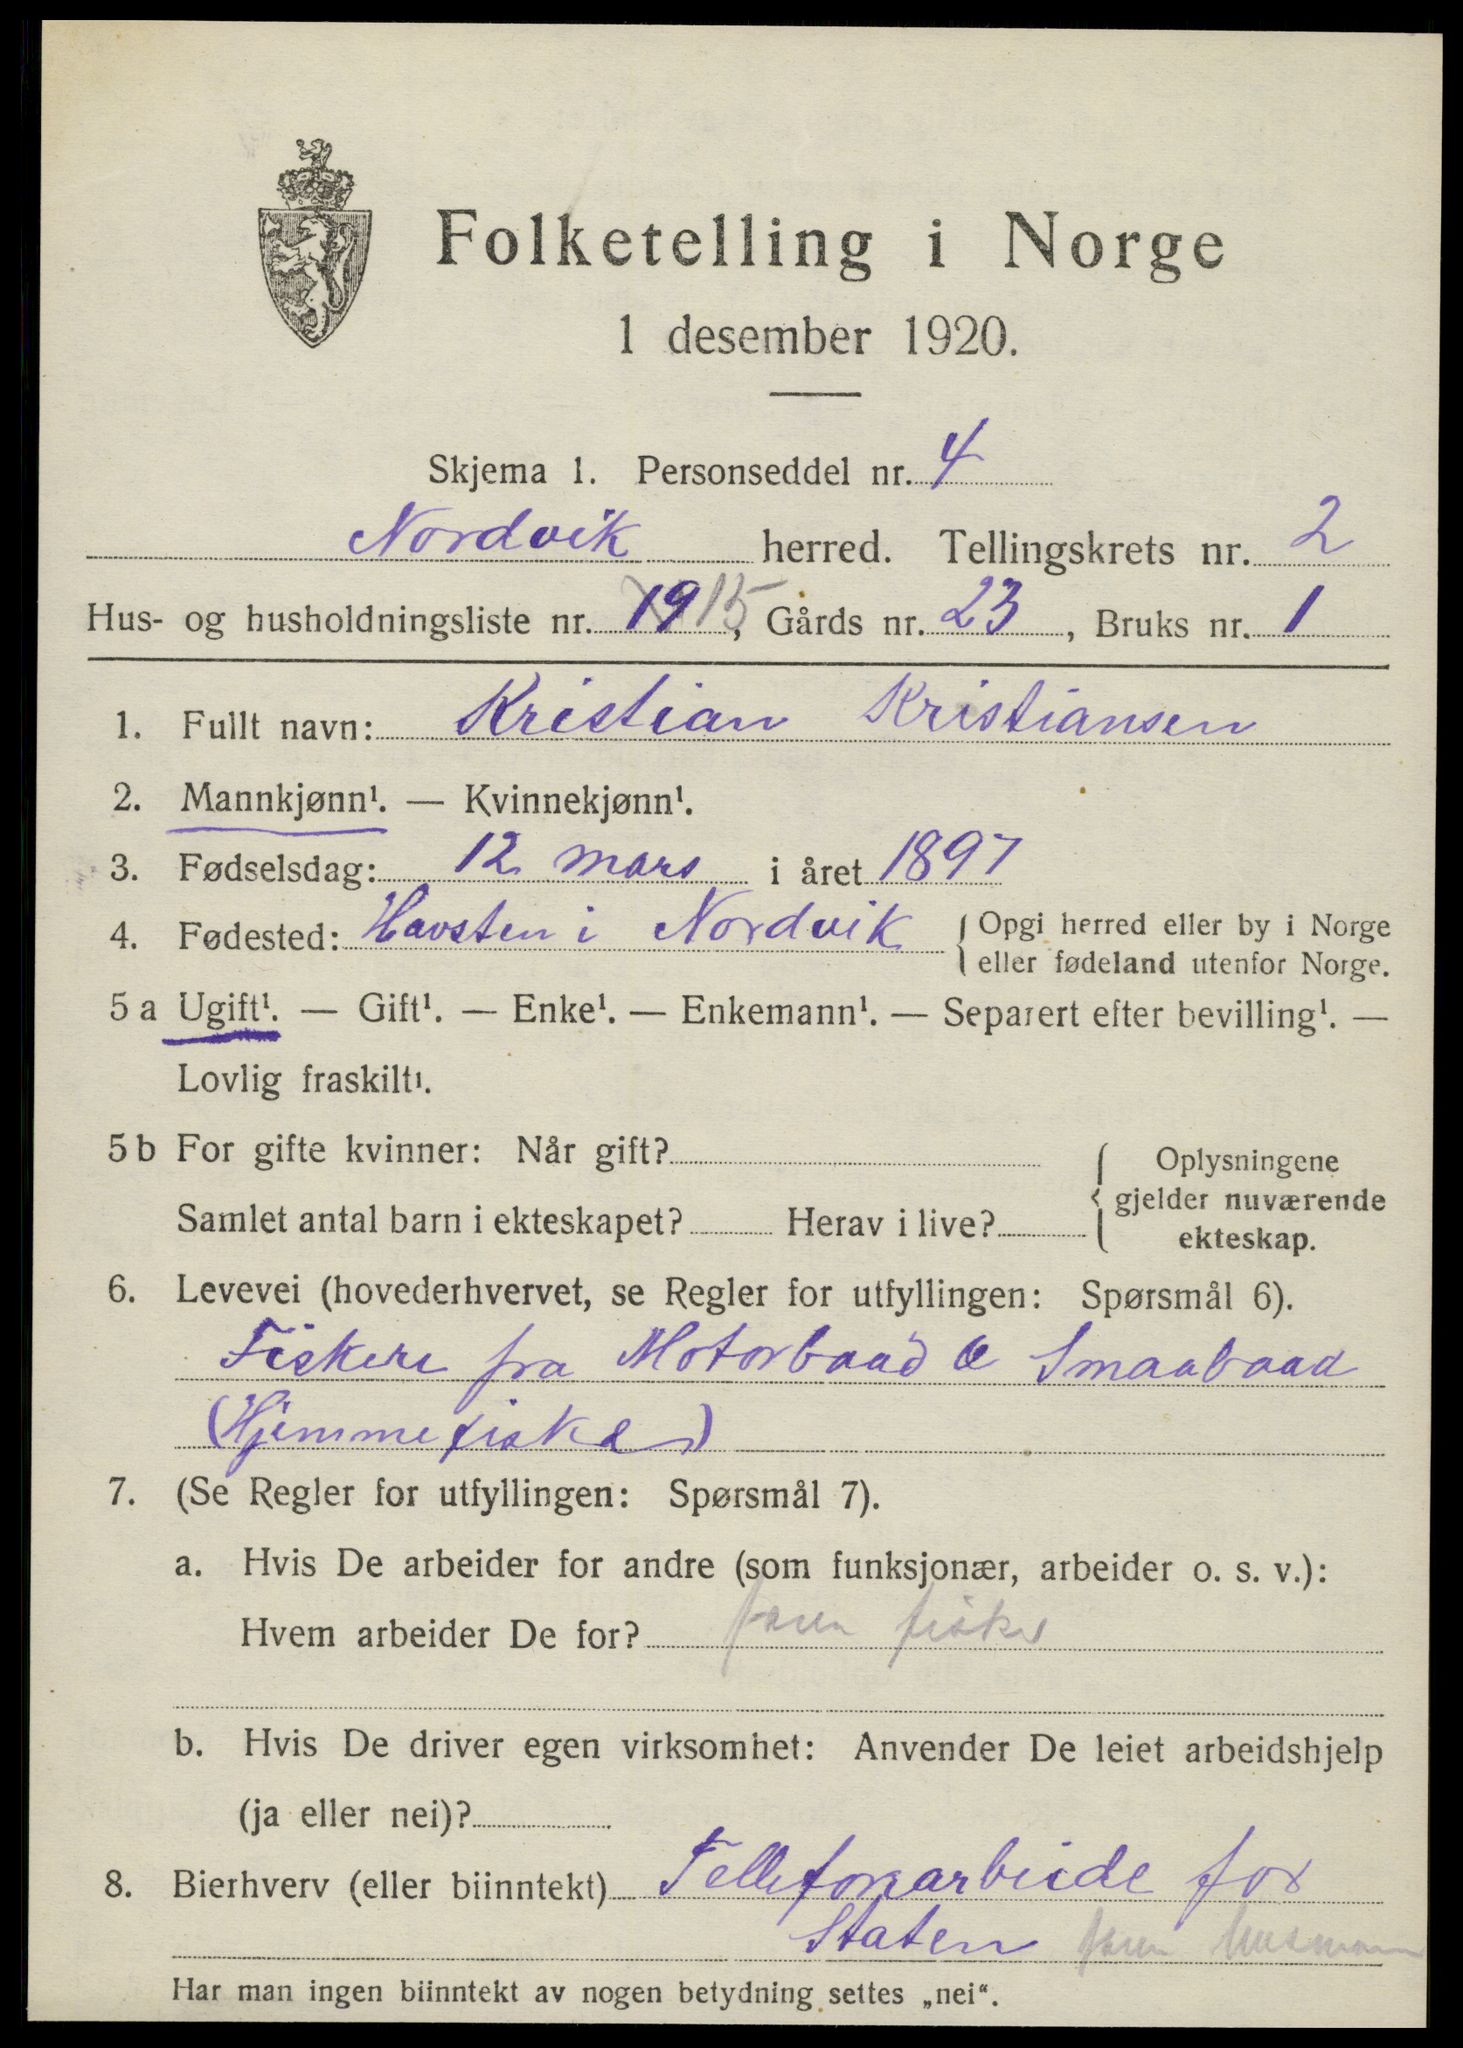 Folketelling i Norge
1 desember 1920.
Skjema 1. Personseddel nr. 4
Nordvik herred. Tellingskrets nr. 2
Hus- og husholdningsliste nr. 19 15, Gårds nr. 23, Bruks nr. 1
1. Fullt navn: Kristian Kristiansen
2. Mannkjønn¹. — Kvinnekjønn¹.
3. Fødselsdag: 12 mars i året 1897
4. Fødested: Havsten i Nordvik { Opgi herred eller by i Norge
eller fødeland utenfor Norge.
5 a Ugift¹. — Gift¹. — Enke¹. — Enkemann¹. — Separert efter bevilling¹. —
Lovlig fraskilt¹.
5 b For gifte kvinner: Når gift?
Samlet antal barn i ekteskapet? Herav i live?
{ Oplysningene
gjelder nuværende
ekteskap.
6. Levevei (hovederhvervet, se Regler for utfyllingen: Spørsmål 6).
Fiskere fra Motorbaad & Smaabaad
(Hjemmefiske)
7. (Se Regler for utfyllingen: Spørsmål 7).
a. Hvis De arbeider for andre (som funksjonær, arbeider o. s. v.):
Hvem arbeider De for? fisker
b. Hvis De driver egen virksomhet: Anvender De leiet arbeidshjelp
(ja eller nei)?
8. Bierhverv (eller biinntekt) Tellefonarbeide for
Staten
Har man ingen biinntekt av nogen betydning settes „nei“.